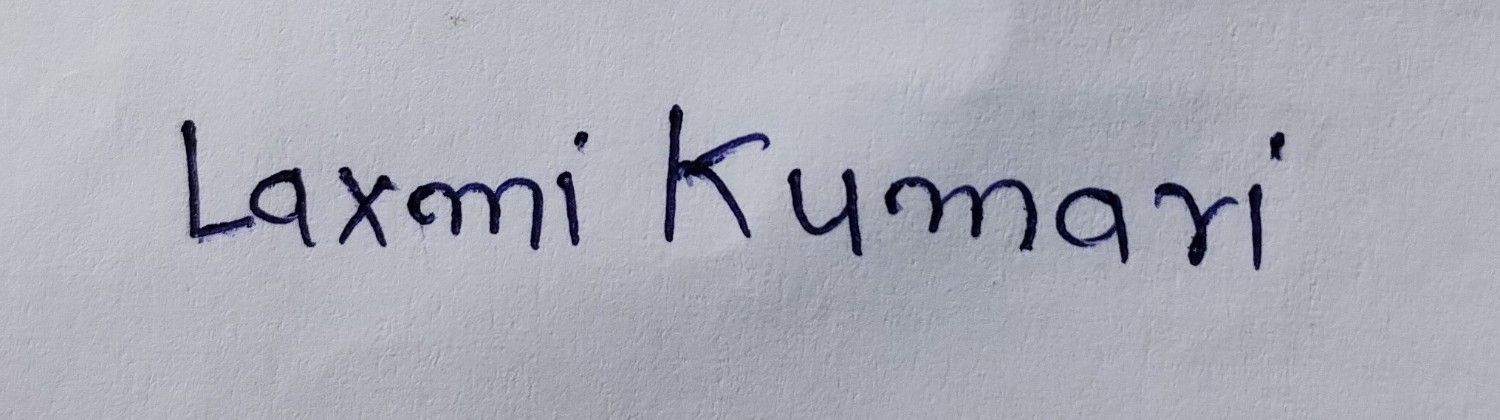 Laxmi Kumari